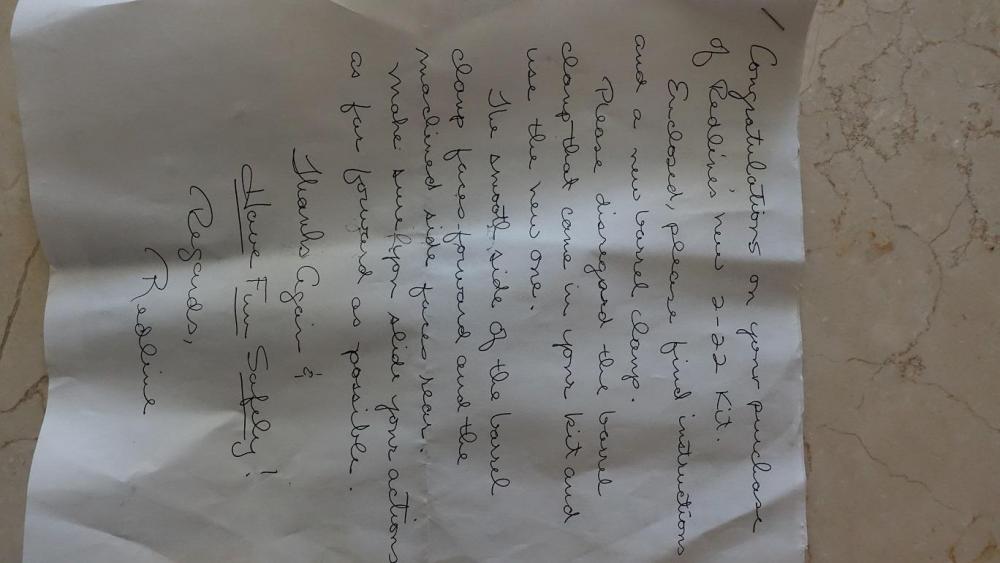 Congratulations on your purchase
of Redline's new 2-22 Kit.
Enclosed, please find intructions
and a new barrel clamp.
Please disregard the barrel
clamp that came in your kit and
use the new one.
The smooth side of the barrel
clamp faces foward and the
machined side faces rear.
Make sure you slide your actions
as far forward as possible.
Thanks Again &
Have Fun Safely!
Regards,
Redline